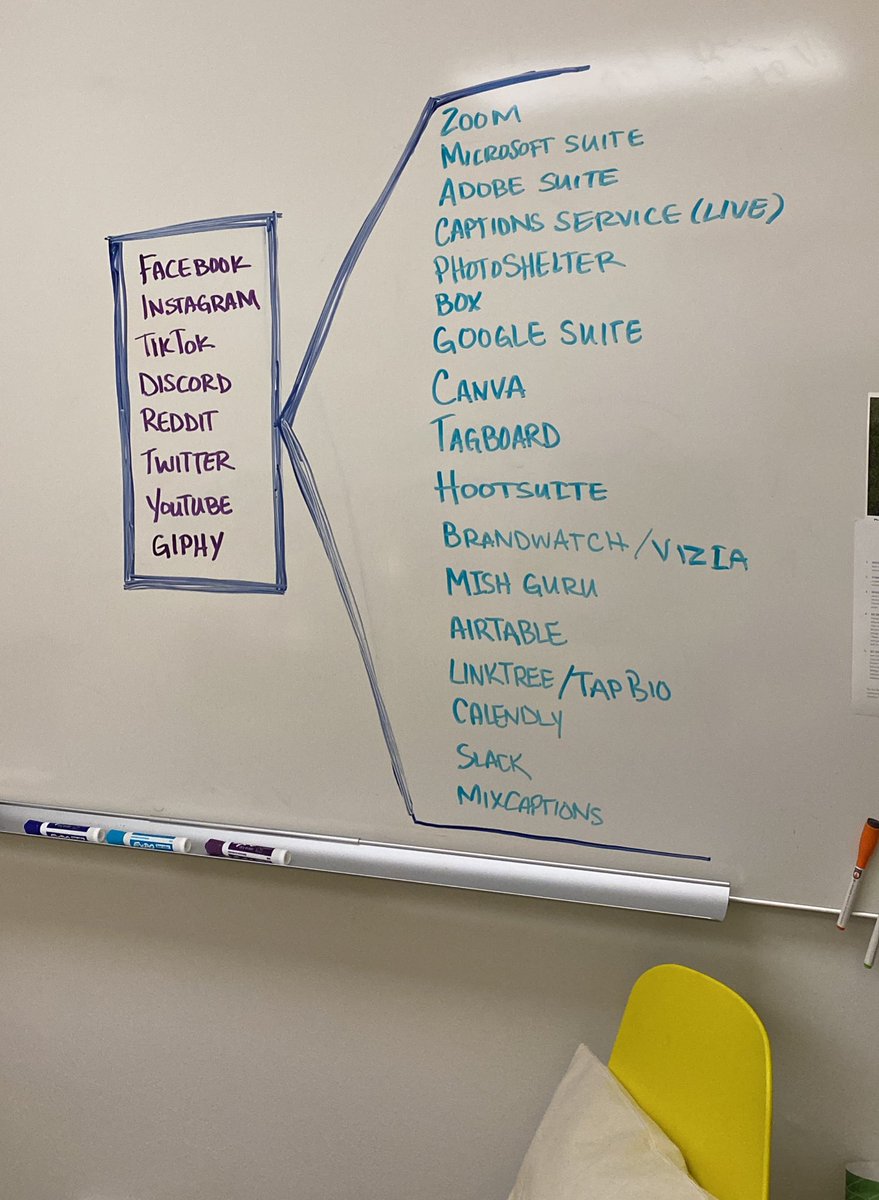 FACEBOOK
INSTAGRAM
TIKTOK
DISCORD
REDDIT
TWITTER
YOUTUBE
GIPHY
ZOOM
MICROSOFT SUITE
ADOBE SUITE
CAPTIONS SERVICE (LIVE)
PHOTOSHELTER
BOX
GOOGLE SUITE
CANVA
TAGBOARD
HOOTSUITE
BRANDWATCH/VIZIA
MISH GURU
AIRTABLE
LINKTREE/TAP BIO
CALENDLY
SLACK
MIXCAPTIONS